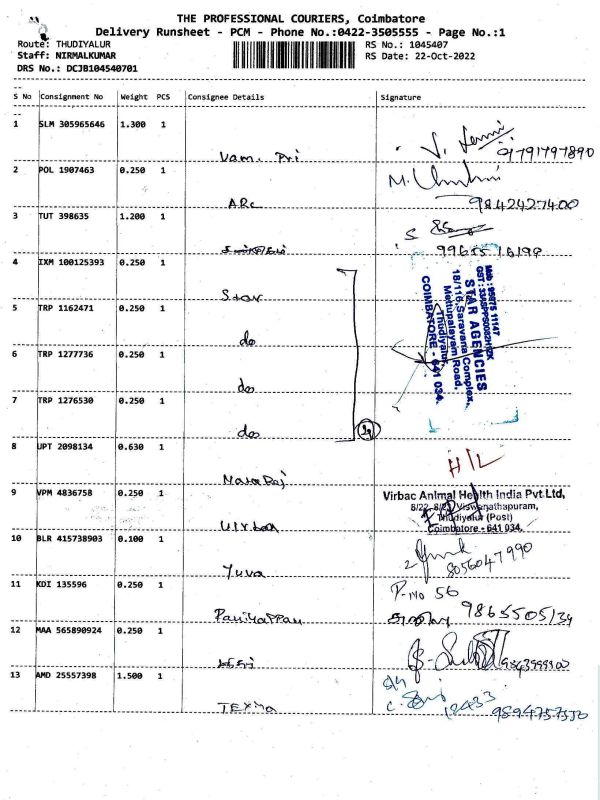 THE PROFESSIONAL COURIERS, Coimbatore
Delivery Runsheet - PCM - Phone No.:0422-3505555 - Page No.:1
Route: THUDIYALUR RS No.: 1045407
Staff: NIRMALKUMAR RS Date: 22-Oct-2022
DRS No.: DCJB104540701
S No Consignment No Weight PCS Consignee Details Signature
1 SLM 305965646 1.300 1
9791797890
2 POL 1907463 0.250 1
ARC 9842427400
3 TUT 398635 1.200 1
4 IXM 100125393 0.250 1
Star
5 TRP 1162471 0.250 1
do
6 TRP 1277736 0.250 1
do
7 TRP 1276530 0.250 1
do
Mob : 95975 11147
STAR AGENCIES
18/116, Saravana Complex,
Mettupalayam Road,
Thudiyalur,
COIMBATORE - 641 034.
8 UPT 2098134 0.630 1
H/L
9 VPM 4836758 0.250 1
Virbac Animal Health India Pvt.Ltd,
Viswanathapuram,
Thudiyalur (Post)
Coimbatore - 641 034.
10 BLR 415738903 0.100 1
Yuva 8056047990
11 KDI 135596 0.250 1
P.No 56
12 MAA 565890924 0.250 1
13 AMD 25557398 1.500 1
12433
9894757550